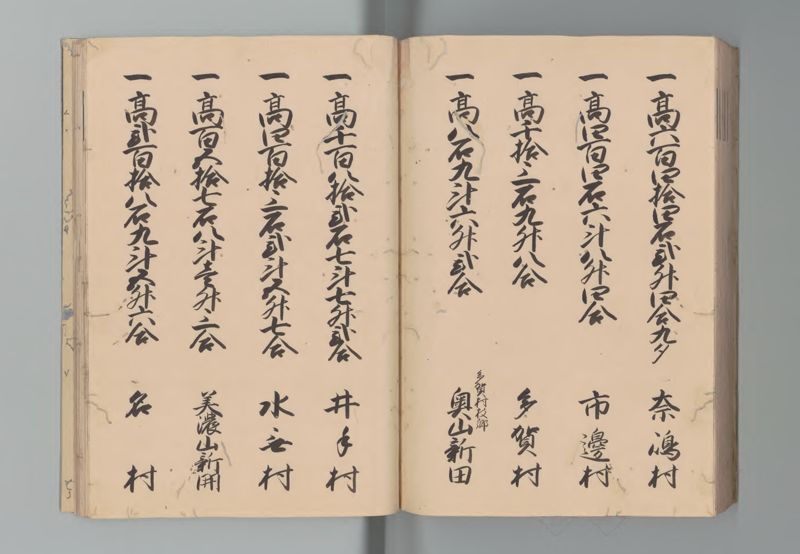 一高六百四拾四石弐升四合九夕 奈嶋村
一高四百四石六斗八升四合 市邊村
一高千拾三石九升八合 多賀村
一高八石九斗六升弐合 多賀村枝郷 奥山新田
一高千百八拾弐石七斗七升弐合 井手村
一高四百拾三石弐斗五升七合 水無村
一高百五拾七石八斗壱升三合 美濃山新開
一高弐百拾八石九斗五升六合 村